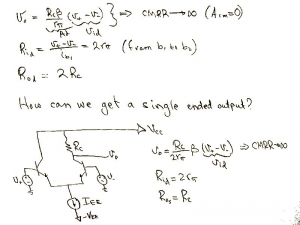 v₀ = Rcβ/rπ (v₊ - v₋) } ⇒ CMRR → ∞ (Acm = 0)
Ad vid
Rid = (v₊ - v₋)/ib₁ = 2rπ (from b₁ to b₂)
Rod = 2Rc
How can we get a single ended output?
Vcc
Rc
v₀
v₊
v₋
IEE
-VEE
v₀ = Rc/2rπ β (v₊ - v₋) ⇒ CMRR → ∞
vid
Rid = 2rπ
Ros = Rc